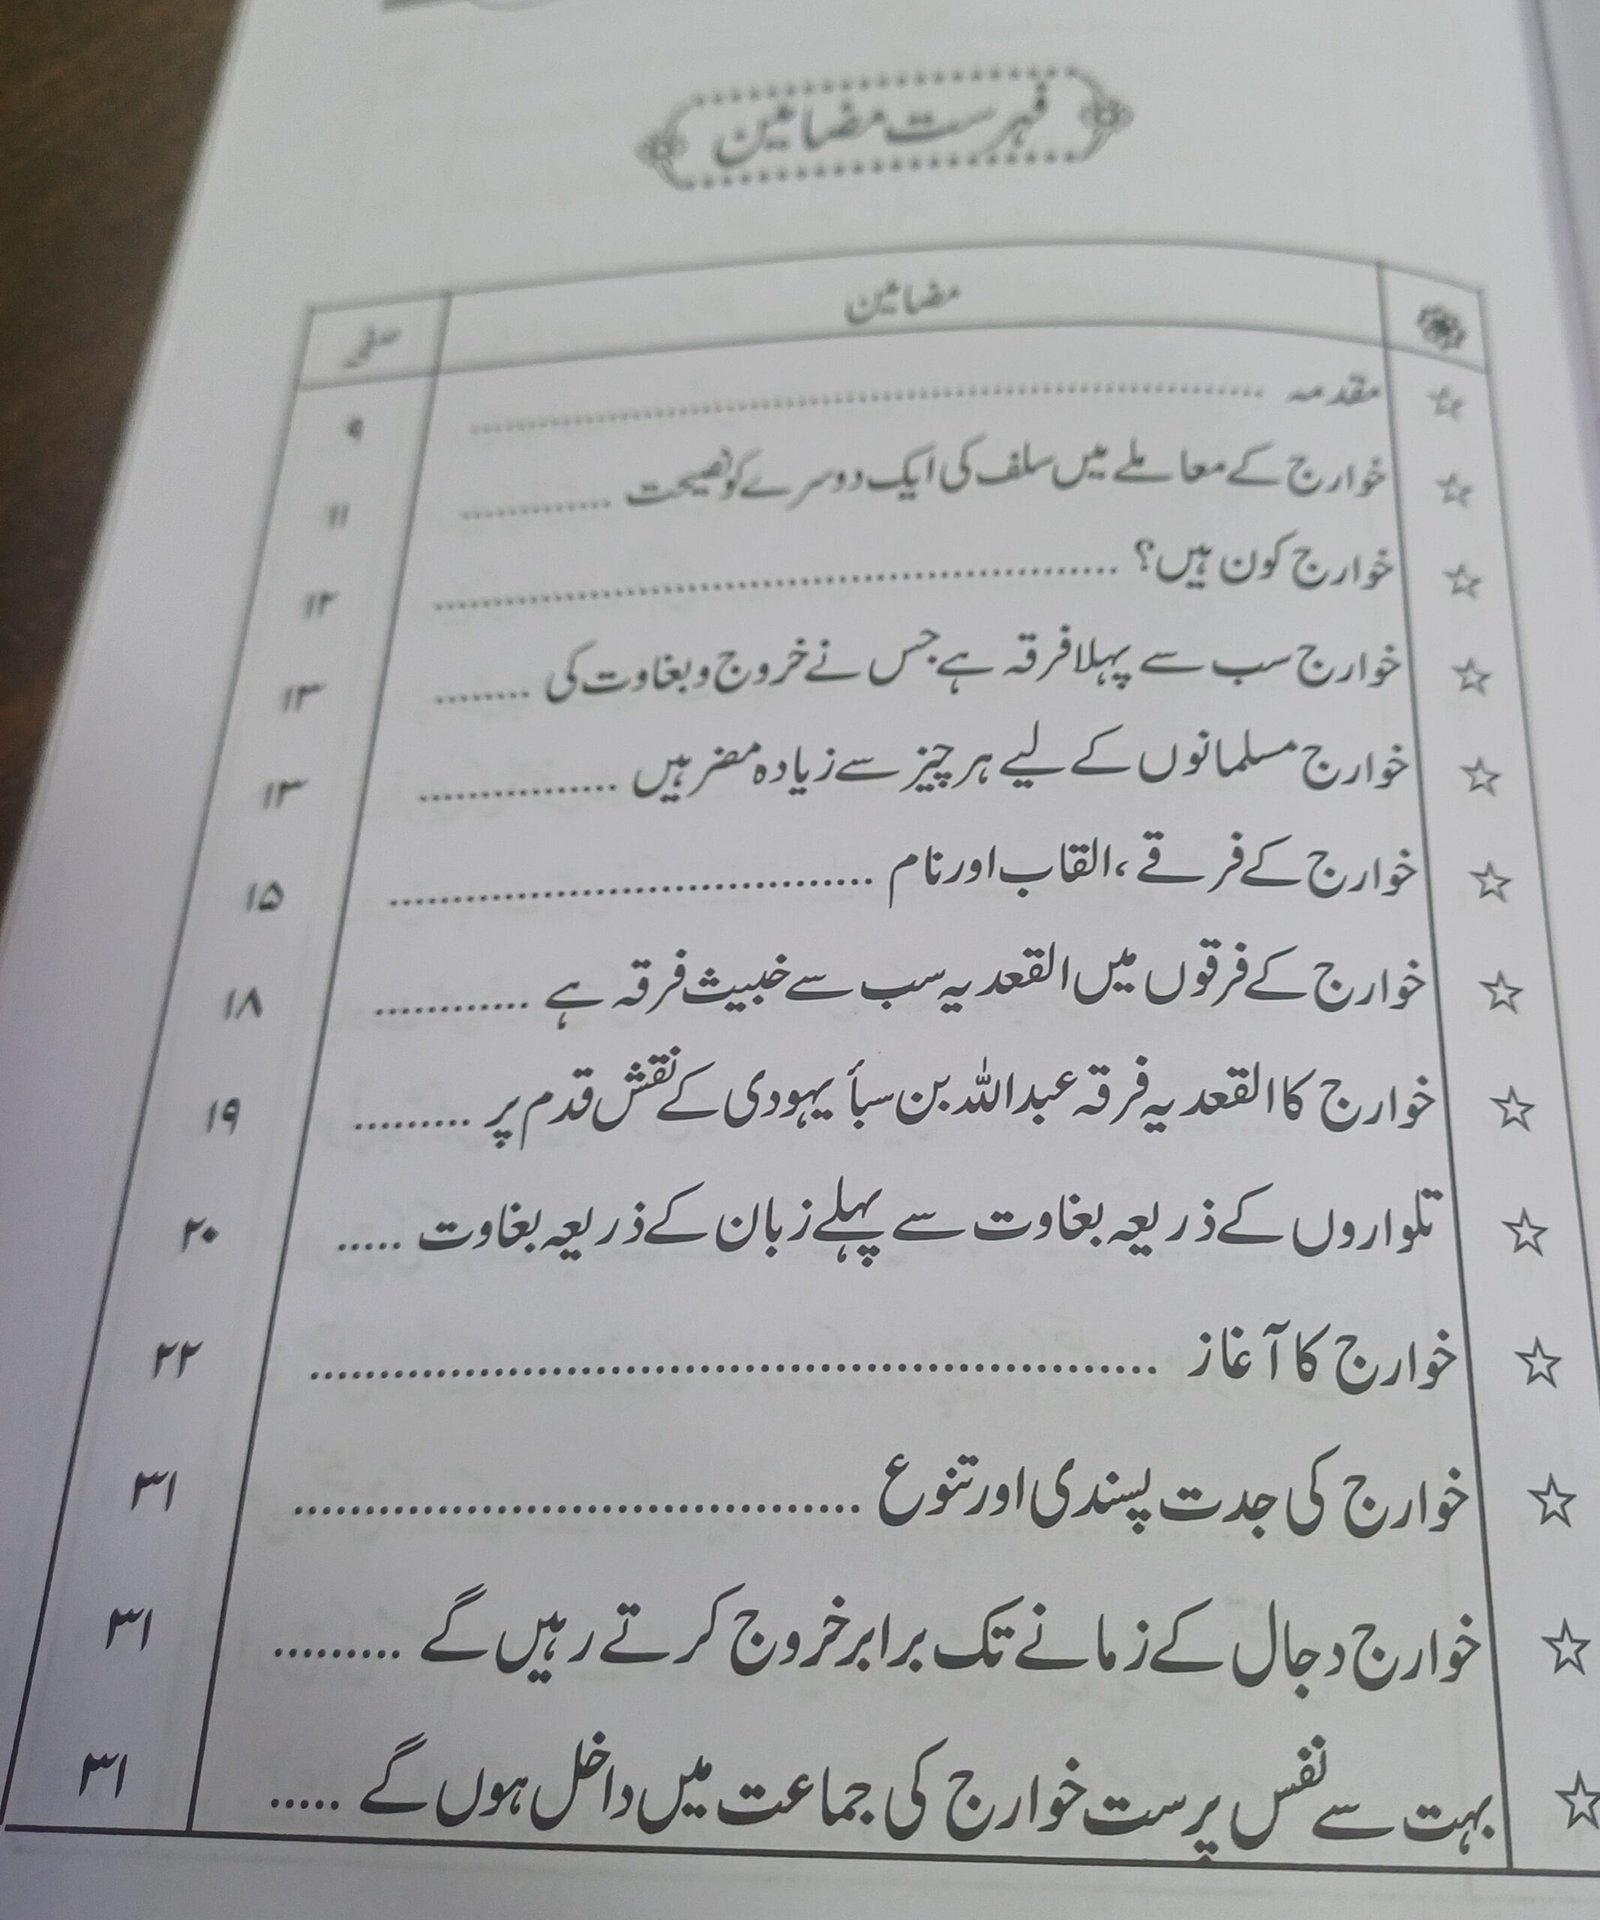 فہرست مضامین
مضامین صفحہ
☆ مقدمہ ........ ۹
☆ خوارج کے معاملے میں سلف کی ایک دوسرے کو نصیحت ........ ۱۱
☆ خوارج کون ہیں؟ ........ ۱۲
☆ خوارج سب سے پہلا فرقہ ہے جس نے خروج و بغاوت کی ........ ۱۳
☆ خوارج مسلمانوں کے لیے ہر چیز سے زیادہ مضر ہیں ........ ۱۳
☆ خوارج کے فرقے، القاب اور نام ........ ۱۵
☆ خوارج کے فرقوں میں القعدیہ سب سے خبیث فرقہ ہے ........ ۱۸
☆ خوارج کا القعدیہ فرقہ عبداللہ بن سبأ یہودی کے نقش قدم پر ........ ۱۹
☆ تلواروں کے ذریعہ بغاوت سے پہلے زبان کے ذریعہ بغاوت ..... ۲۰
☆ خوارج کا آغاز ........ ۲۲
☆ خوارج کی جدت پسندی اور تنوع ........ ۳۱
☆ خوارج دجال کے زمانے تک برابر خروج کرتے رہیں گے ........ ۳۱
☆ بہت سے نفس پرست خوارج کی جماعت میں داخل ہوں گے ..... ۳۱